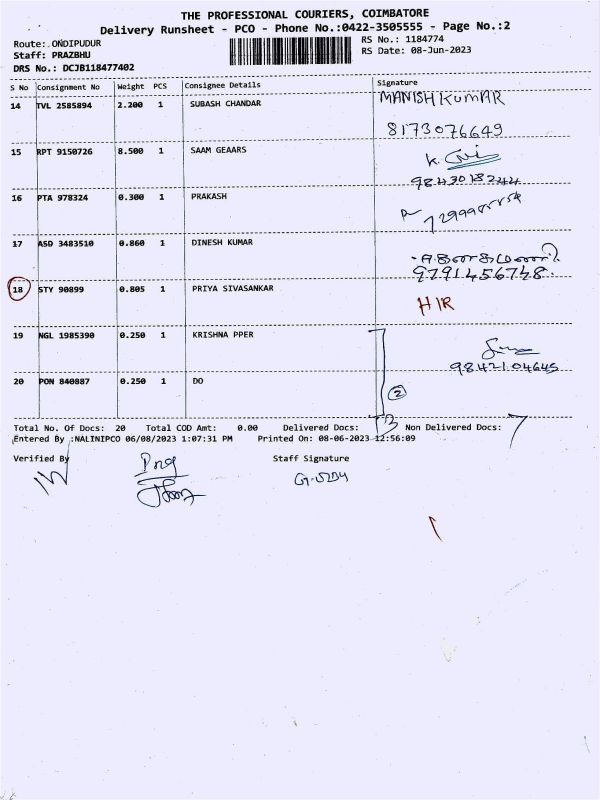 THE PROFESSIONAL COURIERS, COIMBATORE
Delivery Runsheet - PCO - Phone No.:0422-3505555 - Page No.:2
Route: ONDIPUDUR
RS No.: 1184774
Staff: PRAZBHU
RS Date: 08-Jun-2023
DRS No.: DCJB118477402
S No Consignment No Weight PCS Consignee Details Signature
14 TVL 2585894 2.200 1 SUBASH CHANDAR MANISH KUMAR
8173076649
15 RPT 9150726 8.500 1 SAAM GEAARS
9843018244
16 PTA 978324 0.300 1 PRAKASH
17 ASD 3483510 0.860 1 DINESH KUMAR
9791456748
18 STY 90899 0.805 1 PRIYA SIVASANKAR H/R
19 NGL 1985390 0.250 1 KRISHNA PPER
9842104645
20 PON 840887 0.250 1 DO 2
Total No. Of Docs: 20 Total COD Amt: 0.00 Delivered Docs: 13 Non Delivered Docs: 7
Entered By :NALINIPCO 06/08/2023 1:07:31 PM Printed On: 08-06-2023 12:56:09
Verified By Staff Signature